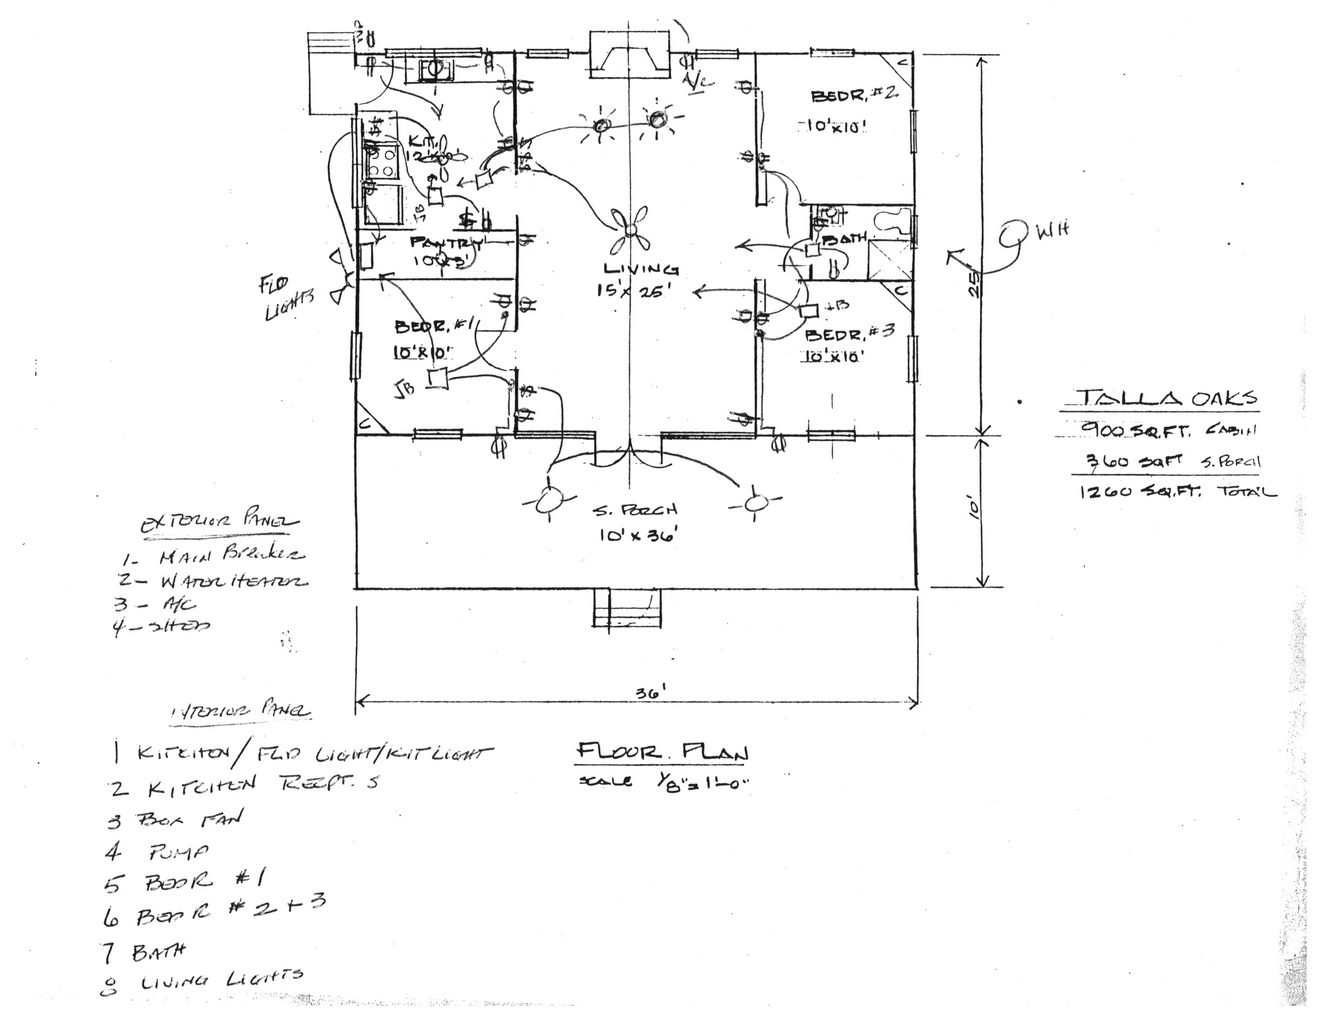 A/C
C
BEDR. #2
10'x10'
KIT.
JB
PANTRY
BATH
WH
LIVING
15' x 25'
25'
FLD
LIGHTS
C
JB
BEDR. #1
10'x10'
BEDR. #3
10'x10'
JB
C
TALLA OAKS
900 SQ.FT. CABIN
360 SQFT S. PORCH
1260 SQ.FT. TOTAL
S. PORCH
10' x 36'
10'
EXTERIOR PANEL
1- MAIN Breaker
2- WATER HEATER
3- A/C
4- SHED
36'
INTERIOR PANEL
1 KITCHEN/FLD LIGHT/KIT LIGHT
2 KITCHEN RECPT. S
3 BOX FAN
4 PUMP
5 BEDR #1
6 BEDR #2 + 3
7 BATH
8 LIVING LIGHTS
FLOOR PLAN
SCALE 1/8" = 1'-0"